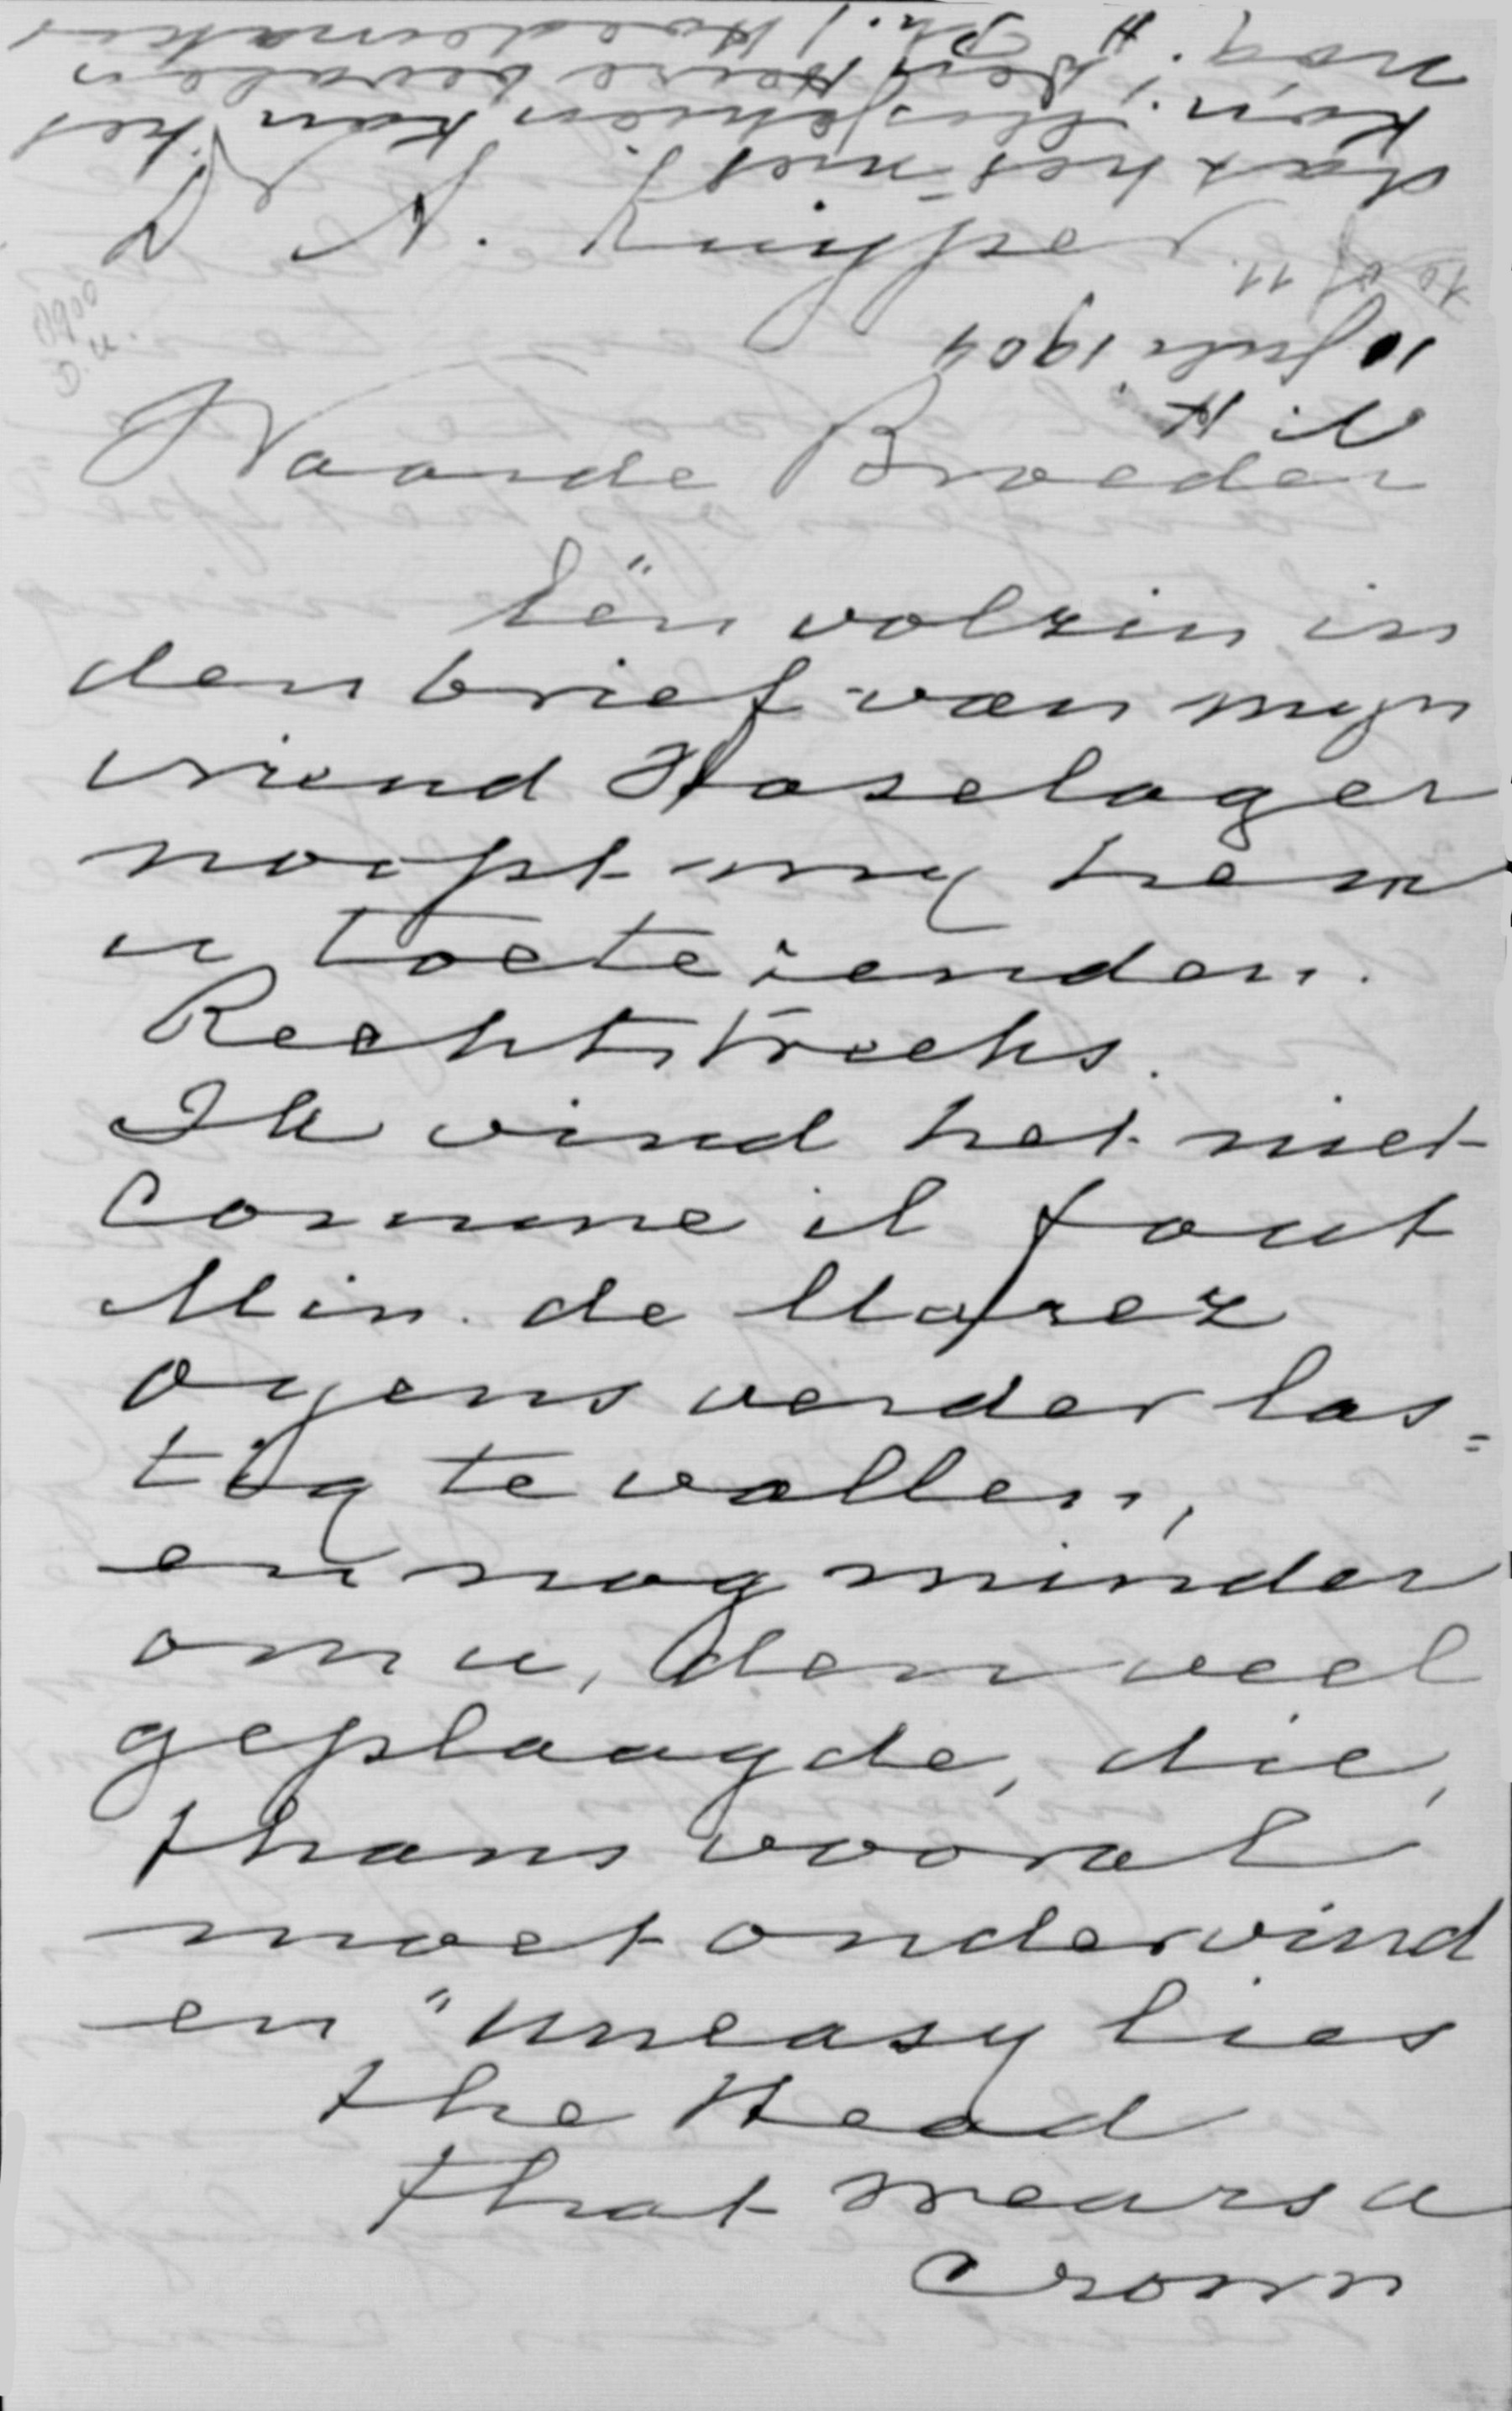 Dr A. Kuyper
10 Juli 1904
N. H.
Waarde Broeder
Eën volzin in
den brief van mijn
vriend Haselager
noopt mij hem
u toetezenden.
Rechtstreeks.
Ik vind het niet
Comme il faut
Min. de Marez
Oyens verder las=
tig te vallen,
en nog minder
om u, den veel
geplaagde, die,
thans vooral
moet ondervind
en "uneasy lies
the Head
that wears a
crown
laat het niet
kon; misschien kan het
nog.
H. Ph. J. Hoedemaker